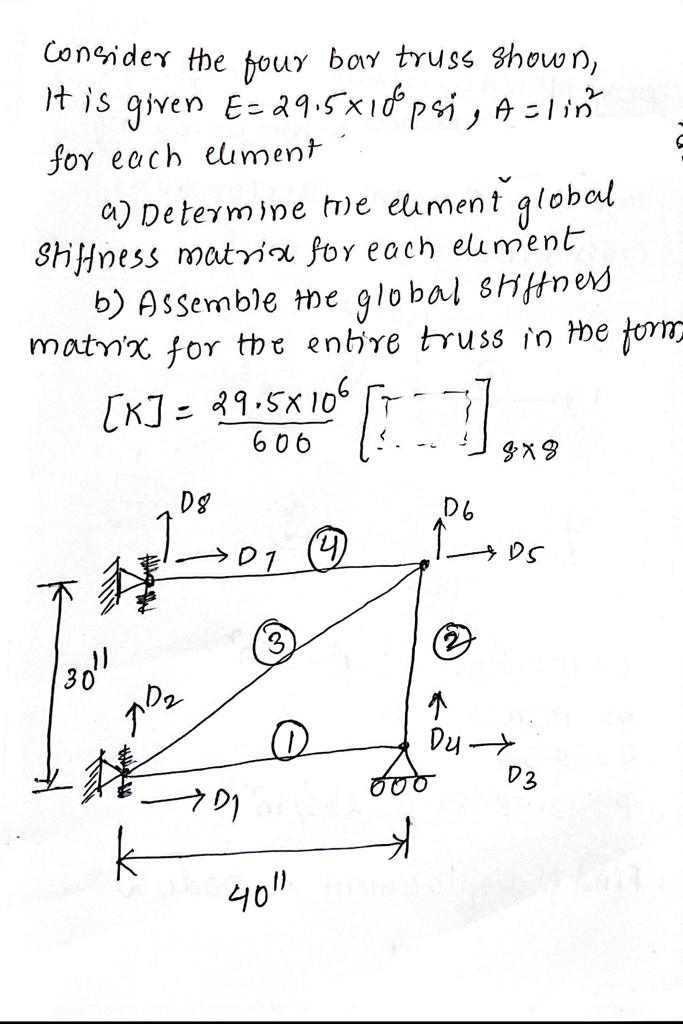 Consider the four bar truss shown,
It is given E = 29.5×10⁶ psi, A = 1 in²
for each eliment
a) Determine the eliment global
stiffness matrix for each eliment
b) Assemble the global stiffness
matrix for the entire truss in the form
[K] = 29.5×10⁶ / 600 [ ] 8×8
D8
D7
4
D6
D5
3
2
30"
D2
1
D4
D3
D1
40"